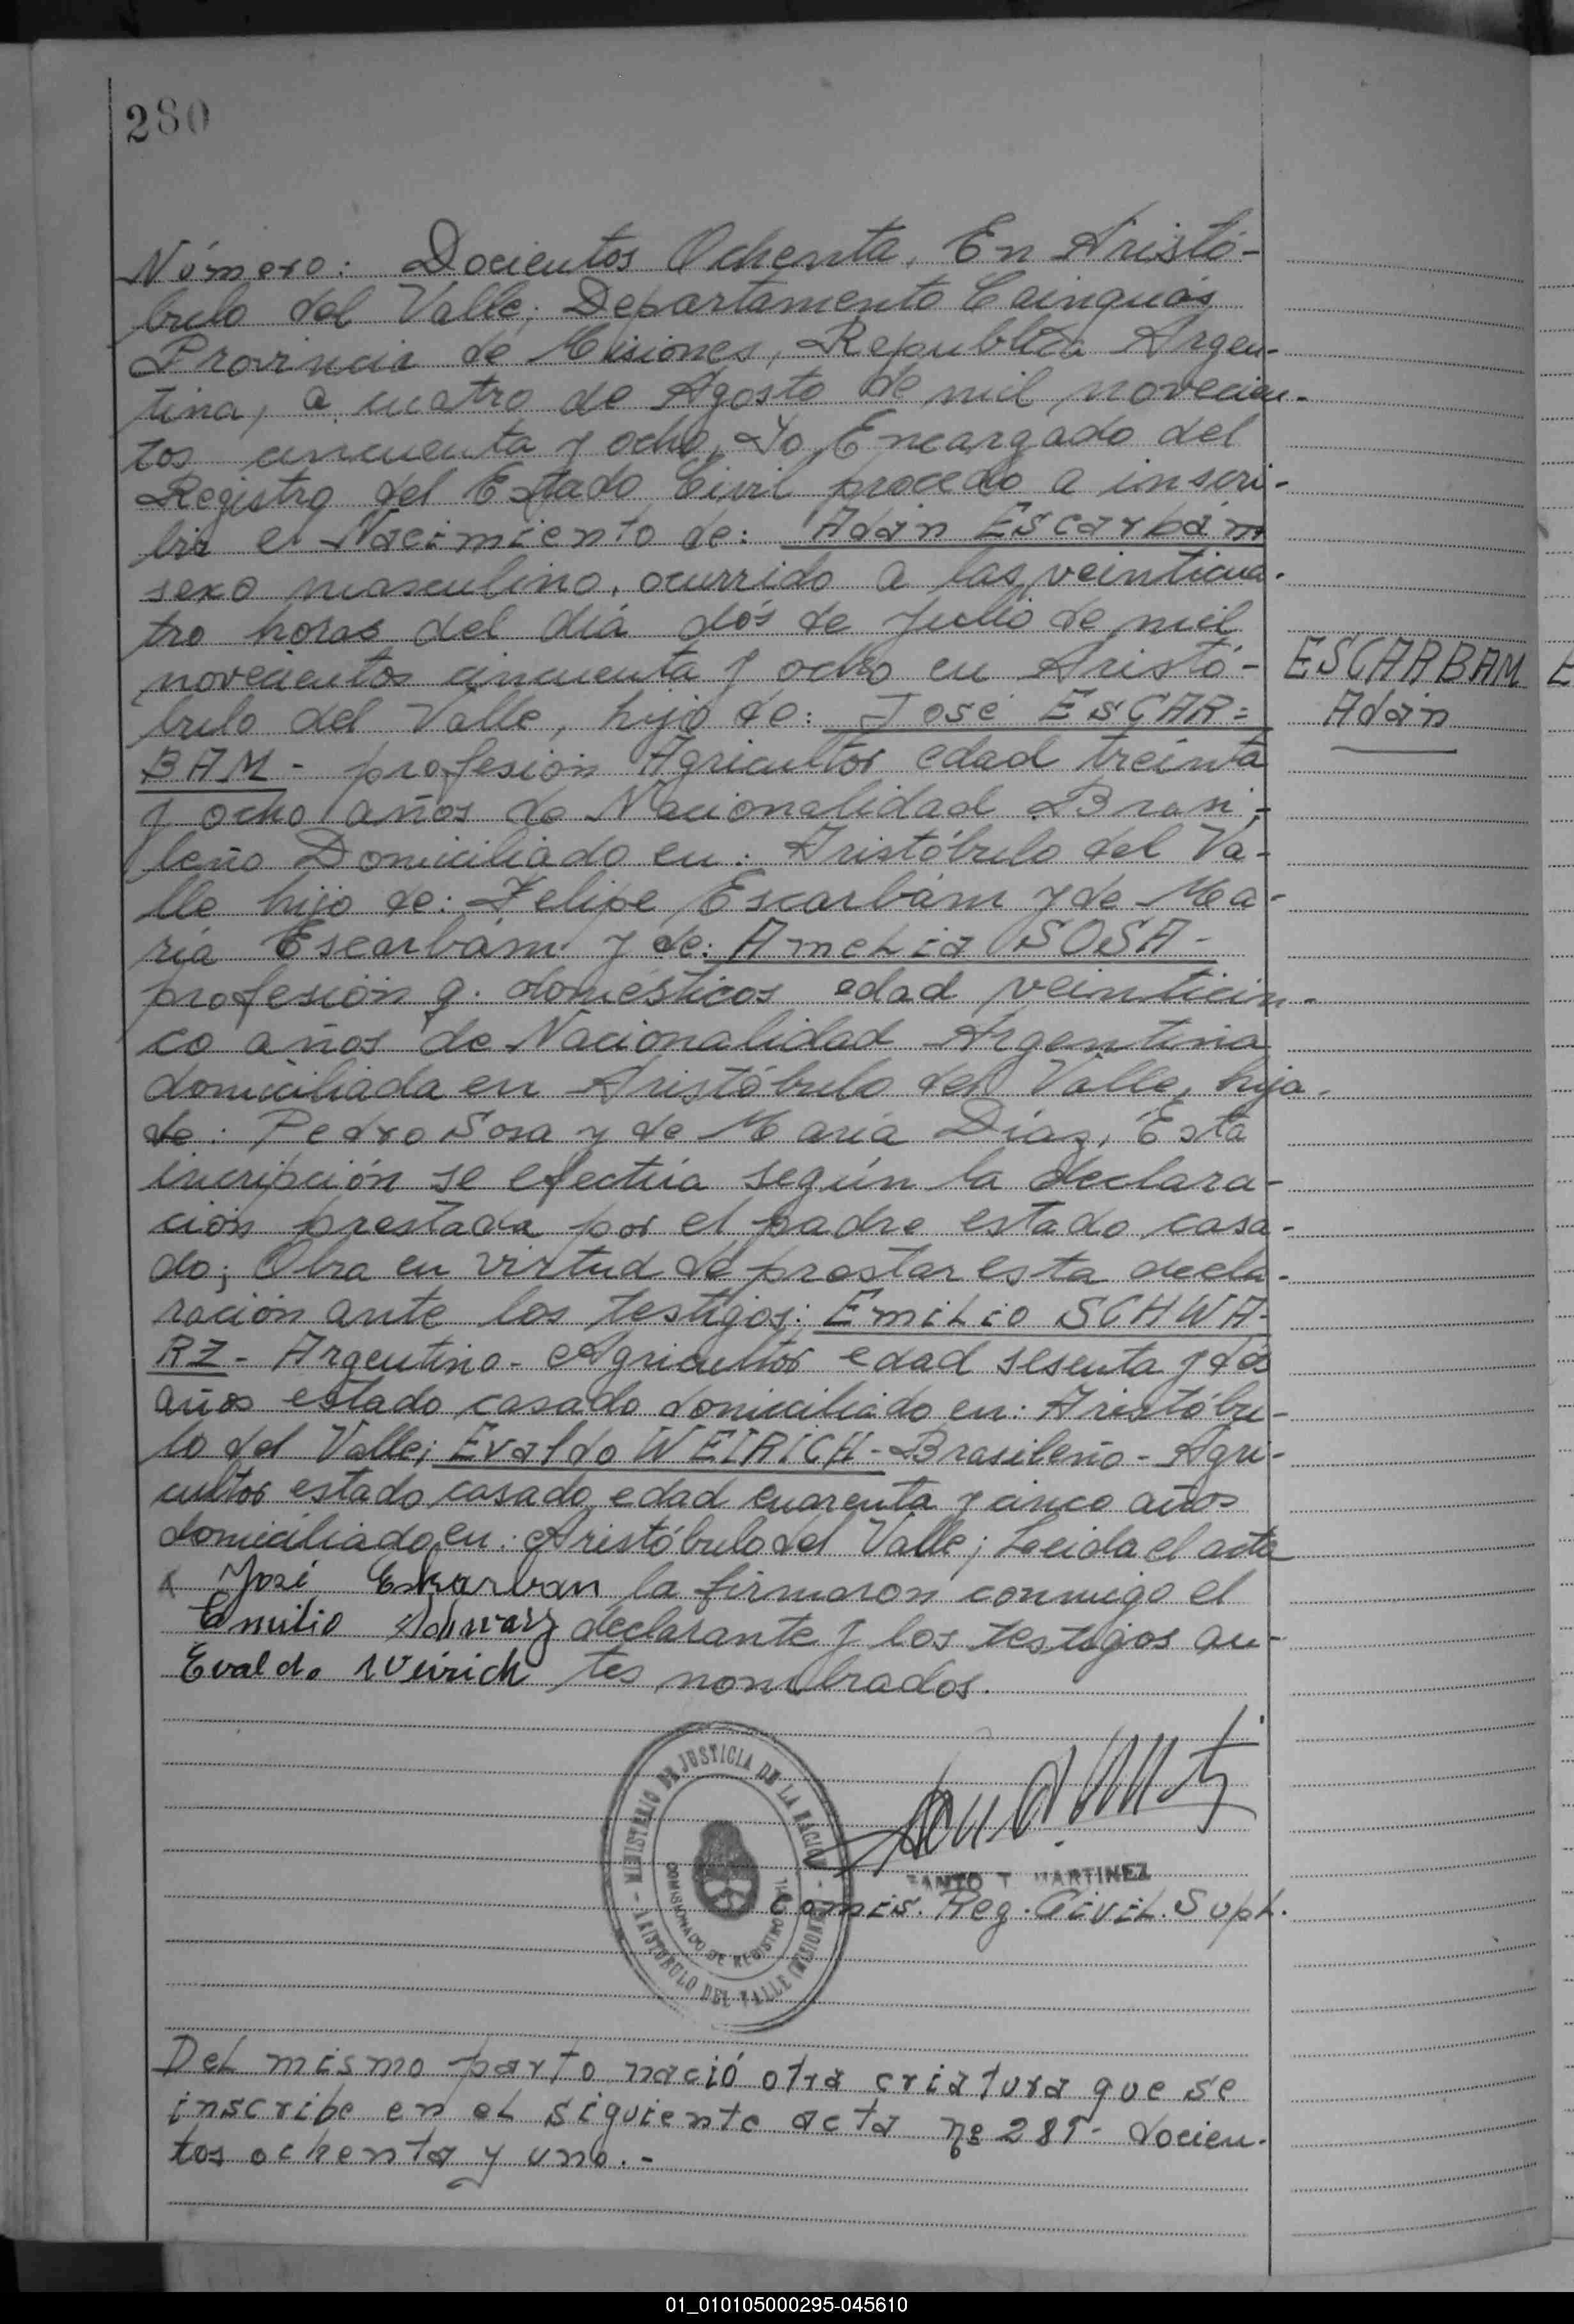 280
Número: Docientos Ochenta, En Aristó-
bulo del Valle, Departamento Cainguás
Provincia de Misiones, Republica Argen-
tina, a cuatro de Agosto de mil novecien-
tos cincuenta y ocho, Yo, Encargado del
Registro del Estado Civil procedo a inscri-
bir el Nacimiento de: Adán Escarbám
sexo masculino, ocurrido a las veinticua-
tro horas del diá dós de Julio de mil
novecientos cincuenta y ocho en Aristó-
bulo del Valle, hijo de: José ESCAR=
BAM - profesión Agricultor edad treinta
y ocho años de Nacionalidad Brasi-
leño Domiciliado en: Aristóbulo del Va-
lle hijo de: Felipe Escarbám y de Ma-
ria Escarbám y de: Amelia SOSA-
profesión q. domésticos edad veinticin-
co años de Nacionalidad Argentina
domiciliada en Aristóbulo del Valle, hija
de: Pedro Sosa y de Maria Diaz, Esta
incripción se efectúa según la declara-
ción prestada por el padre estado casa-
do; Obra en virtud de prestar esta decla-
ración ante los testigos: Emilio SCHWA-
RZ - Argentino - Agricultor edad sesenta y dós
años estado casado domiciliado en: Aristóbu-
lo del Valle; Evaldo WEIRICH - Brasileño - Agri-
cultor estado casado edad cuarenta y cinco años
domiciliado en: Aristóbulo del Valle; Leida el acta
x José Eskarban la firmaron conmigo el
Emilio Schwarz declarante y los testigos an-
Evaldo Weirich tes nombrados.
ESCARBAM
Adán
MINISTERIO DE JUSTICIA DE LA NACION - ARISTOBULO DEL VALLE (MISIONES)
COMISIONADO DE REGISTRO CIVIL
SANTO T. MARTINEZ
Comis. Reg. Civil. Supl.
Del mismo parto nació otra criatura que se
inscribe en el siguiente acta nº 281 - docien-
tos ochenta y uno.-
01_010105000295-045610